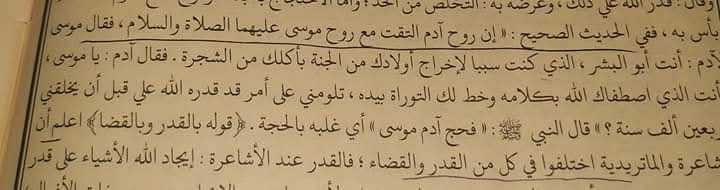 قدر الله علي ذلك ، وغرضه به : التخلص من الحد ؛ وأما الاحتجاج
بأس به ، ففي الحديث الصحيح : « إن روح آدم التقت مع روح موسى عليهما الصلاة والسلام ، فقال موسى
لآدم : أنت أبو البشر ، الذي كنت سببا لإخراج أولادك من الجنة بأكلك من الشجرة . فقال آدم : يا موسى ،
أنت الذي اصطفاك الله بكلامه وخط لك التوراة بيده ، تلومني على أمر قد قدره الله علي قبل أن يخلقني
بعين ألف سنة ؟ » قال النبي ﷺ : « فحج آدم موسى » أي غلبه بالحجة . ﴿قوله بالقدر وبالقضا﴾ اعلم أن
شاعرة والماتريدية اختلفوا في كل من القدر والقضاء ؛ فالقدر عند الأشاعرة : إيجاد الله الأشياء على قدر